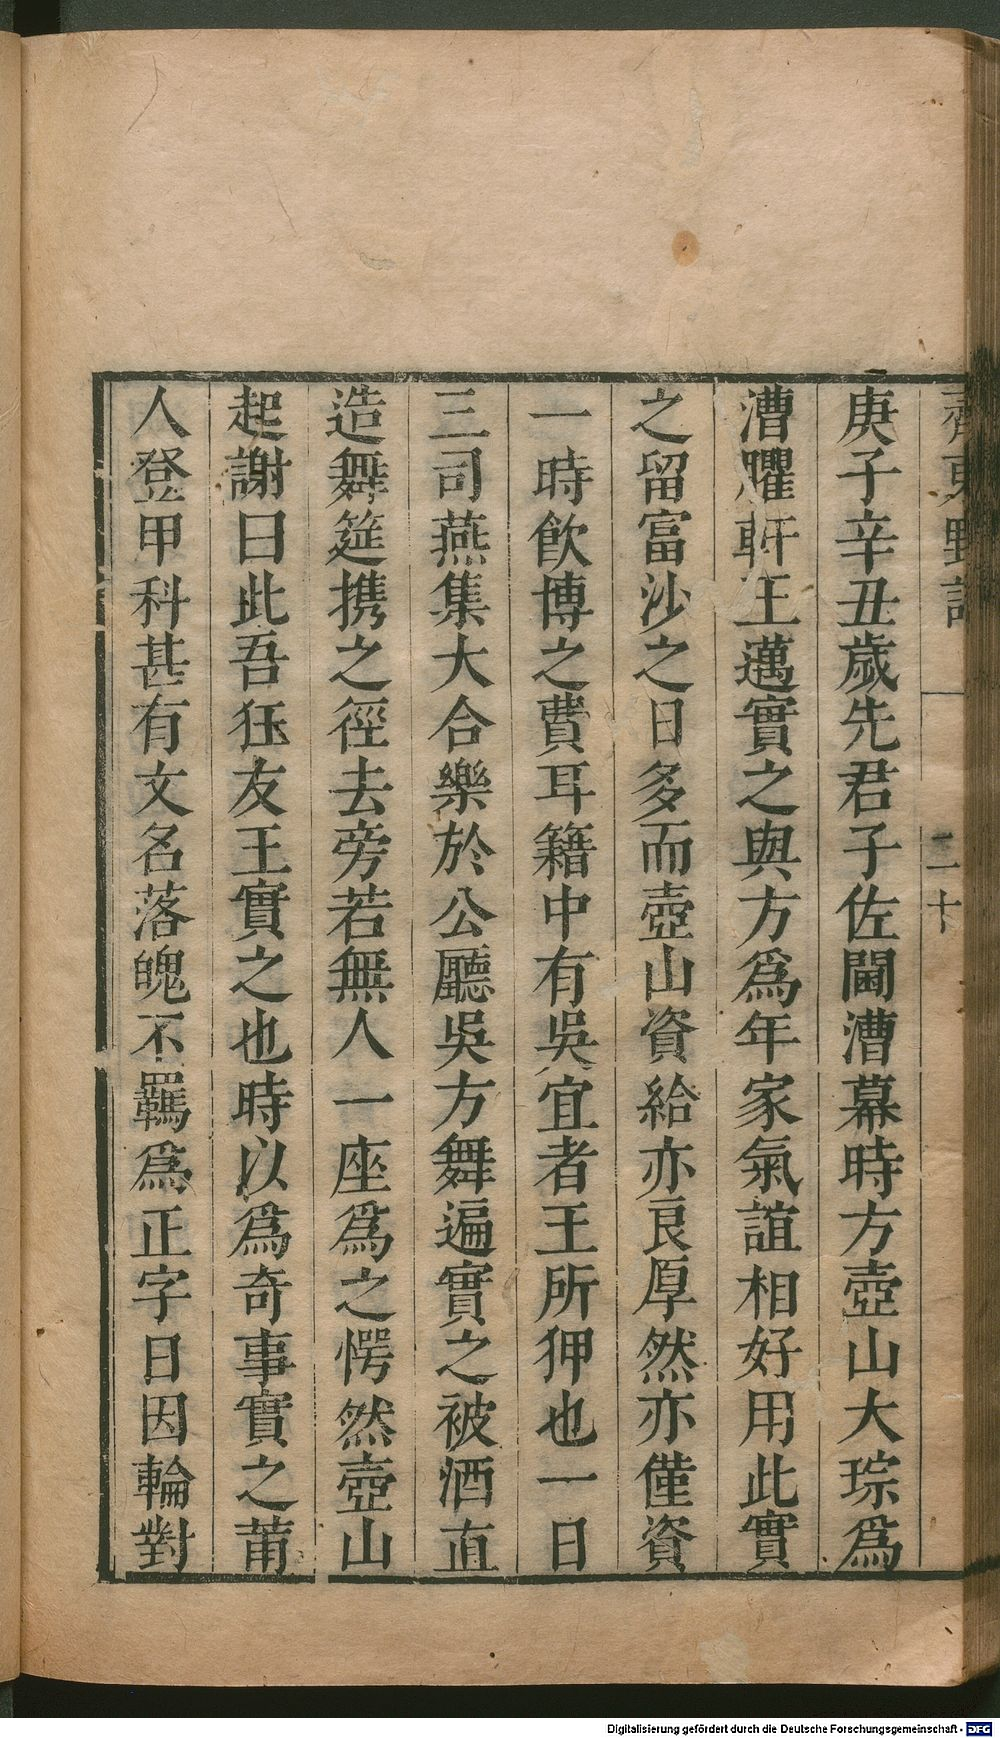 齊東野語 一 二十
庚子辛丑歲先君子佐閫漕幕時方壺山大琮爲
漕臞軒王邁實之與方爲年家氣誼相好用此實
之留富沙之日多而壺山資給亦良厚然亦僅資
一時飲博之費耳籍中有吳宜者王所狎也一日
三司燕集大合樂於公廳吳方舞遍實之被酒直
造舞筵携之徑去旁若無人一座爲之愕然壺山
起謝曰此吾狂友王實之也時以爲奇事實之莆
人登甲科甚有文名落魄不羈爲正字日因輪對
Digitalisierung gefördert durch die Deutsche Forschungsgemeinschaft - DFG